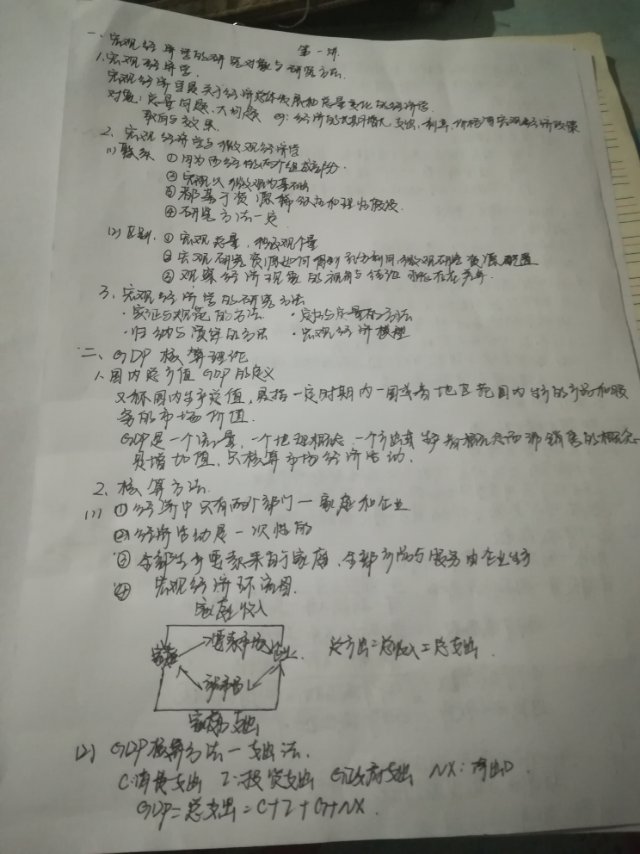 第一讲
一、宏观经济学的研究对象与研究方法.
1.宏观经济学.
宏观经济学是关于经济总体发展和总量变化的经济学
对象:总量问题,大问题 eg:经济的长期增长 支出,利率,价格 宏观经济政策
取向与效果.
2. 宏观经济学与微观经济学
(1)联系 ①同为西经的两个组成部分.
②宏观以微观为基础
③都基于资源稀缺和理性假设.
④研究方法一定
(2)区别. ①宏观总量,微观个量
②宏观研究资源如何得到充分利用,微观研究资源配置
③观察经济现象的视角与结论可能存在差异.
3. 宏观经济学的研究方法
·实证与规范的方法 ·定性与定量的方法
·归纳与演绎的方法 ·宏观经济模型
二、GDP核算理论
1.国内总产值GDP的定义
又称国内生产总值,是指一定时期内一国或者地区范围内生产的产品和服
务的市场价值.
GDP是一个流量,一个地理概念,一个生产概念而非销售的概念
是增加值,只核算市场经济活动.
2. 核算方法.
(1) ①经济中只有两个部门一家庭和企业
②经济活动是一次性的
③全部生产要素来自于家庭,全部产品与服务由企业生产
④ 宏观经济环流图.
家庭收入
家庭 要素市场 企业 总产出=总收入=总支出.
产品市场
家庭支出
(2) GDP核算方法一支出法.
C:消费支出 I:投资支出 G:政府支出 NX:净出口
GDP=总支出=C+I+G+NX.